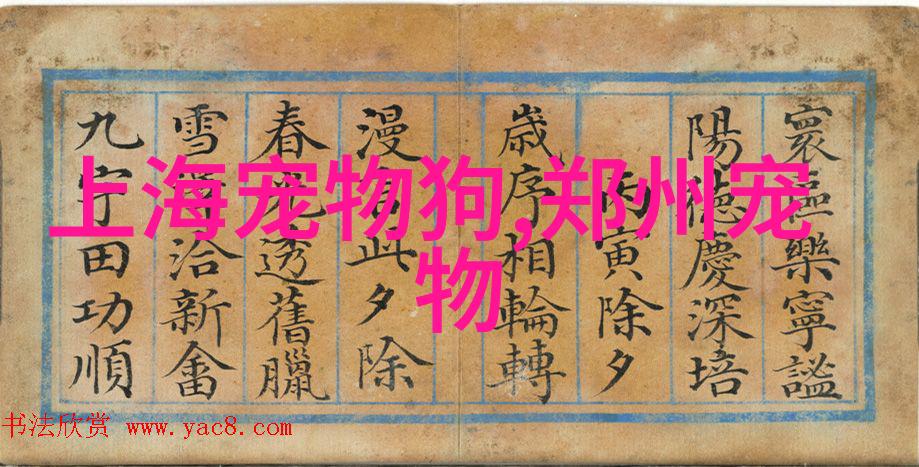 上海宠物狗,郑州宠
物
寰區樂寧謐
陽德慶深培
丙寅除夕
歲序相輪轉
漫此夕除
春光透舊臘
雪洽新畬
九宇田功順
书法欣赏 www.yac8.com